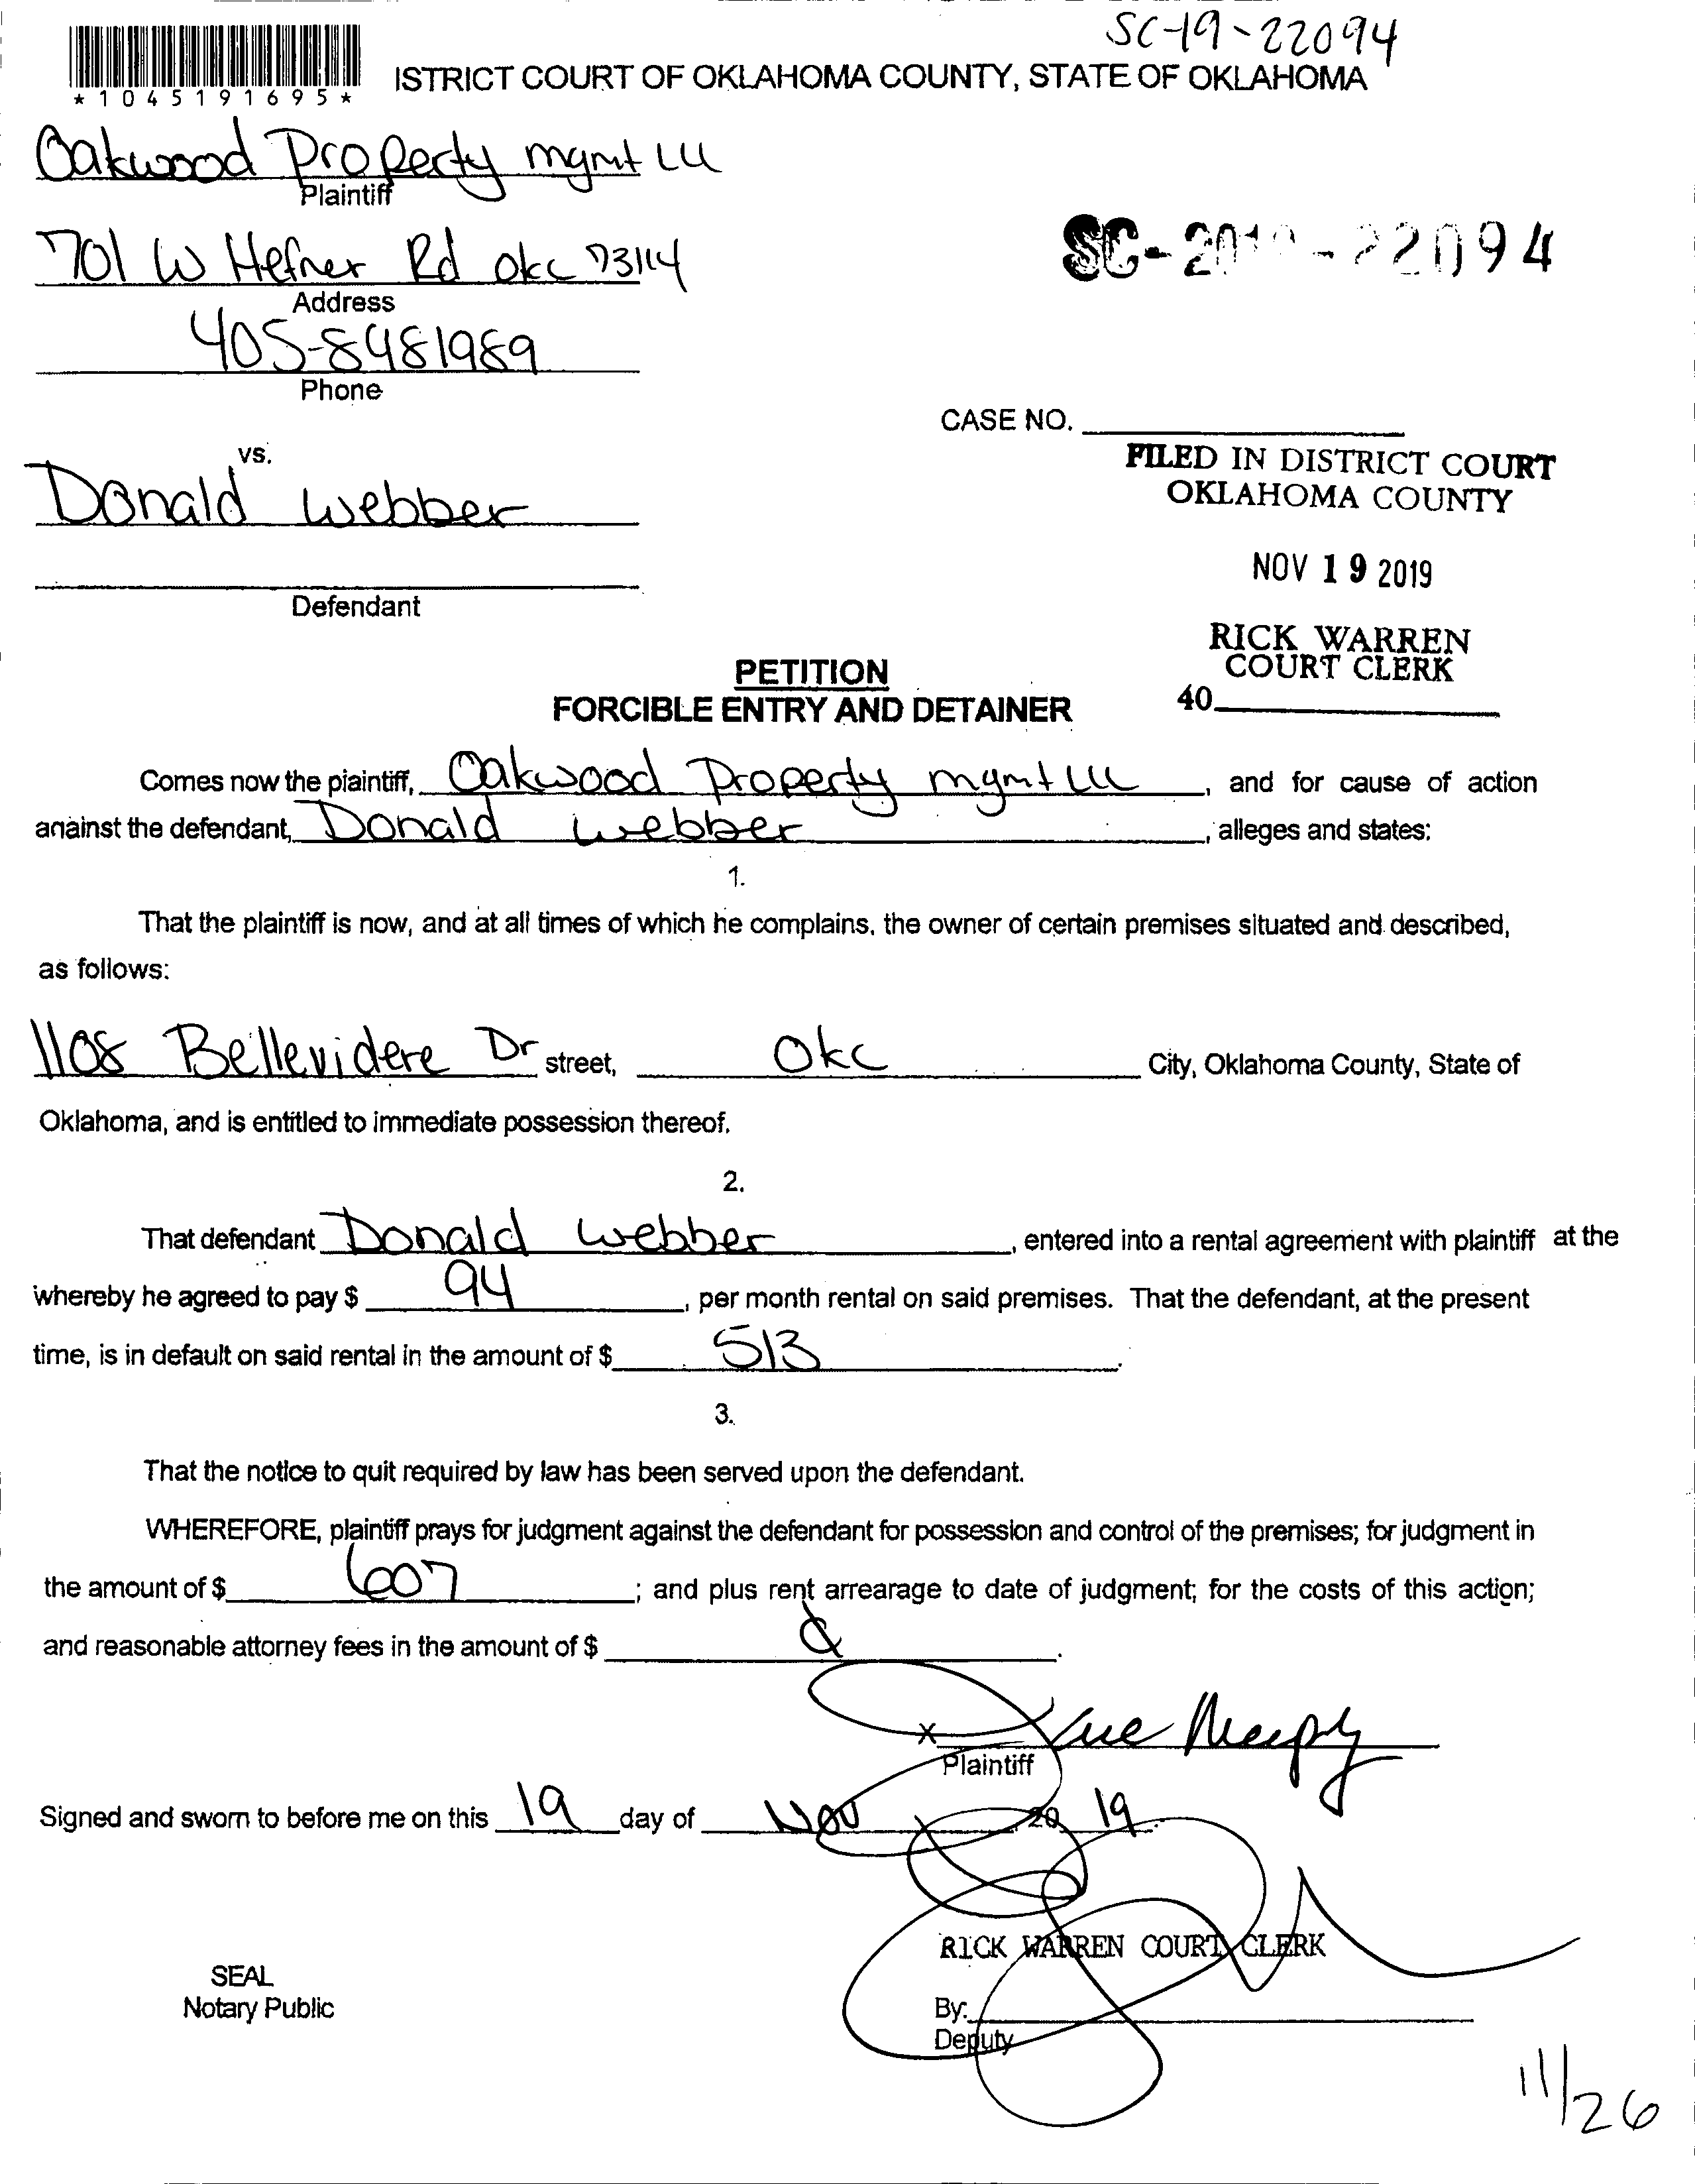 SC-19-22094
*1045191695*
ISTRICT COURT OF OKLAHOMA COUNTY, STATE OF OKLAHOMA
Oakwood Property mgmt LLC
Plaintiff
701 W Hefner Rd okc 73114
SC-2019-22094
Address
405-8481989
Phone
CASE NO.
vs.
FILED IN DISTRICT COURT
OKLAHOMA COUNTY
Donald Webber
NOV 19 2019
Defendant
RICK WARREN
COURT CLERK
40
PETITION
FORCIBLE ENTRY AND DETAINER
Comes now the plaintiff, Oakwood Property mgmt LLC, and for cause of action
against the defendant, Donald Webber, alleges and states:
1.
That the plaintiff is now, and at all times of which he complains, the owner of certain premises situated and described,
as follows:
1108 Bellevidere Dr street, Okc City, Oklahoma County, State of
Oklahoma, and is entitled to immediate possession thereof.
2.
That defendant Donald Webber, entered into a rental agreement with plaintiff at the
whereby he agreed to pay $ 94, per month rental on said premises. That the defendant, at the present
time, is in default on said rental in the amount of $ 513.
3.
That the notice to quit required by law has been served upon the defendant.
WHEREFORE, plaintiff prays for judgment against the defendant for possession and control of the premises; for judgment in
the amount of $ 607; and plus rent arrearage to date of judgment; for the costs of this action;
and reasonable attorney fees in the amount of $
X
Plaintiff
Signed and sworn to before me on this 19 day of Nov 20 19.
RICK WARREN COURT CLERK
SEAL
Notary Public
By:
Deputy
11/26